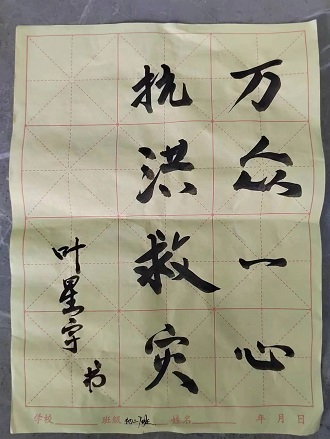 万众一心
抗洪救灾
叶星宇 书
学校 班级 姓名 年 月 日